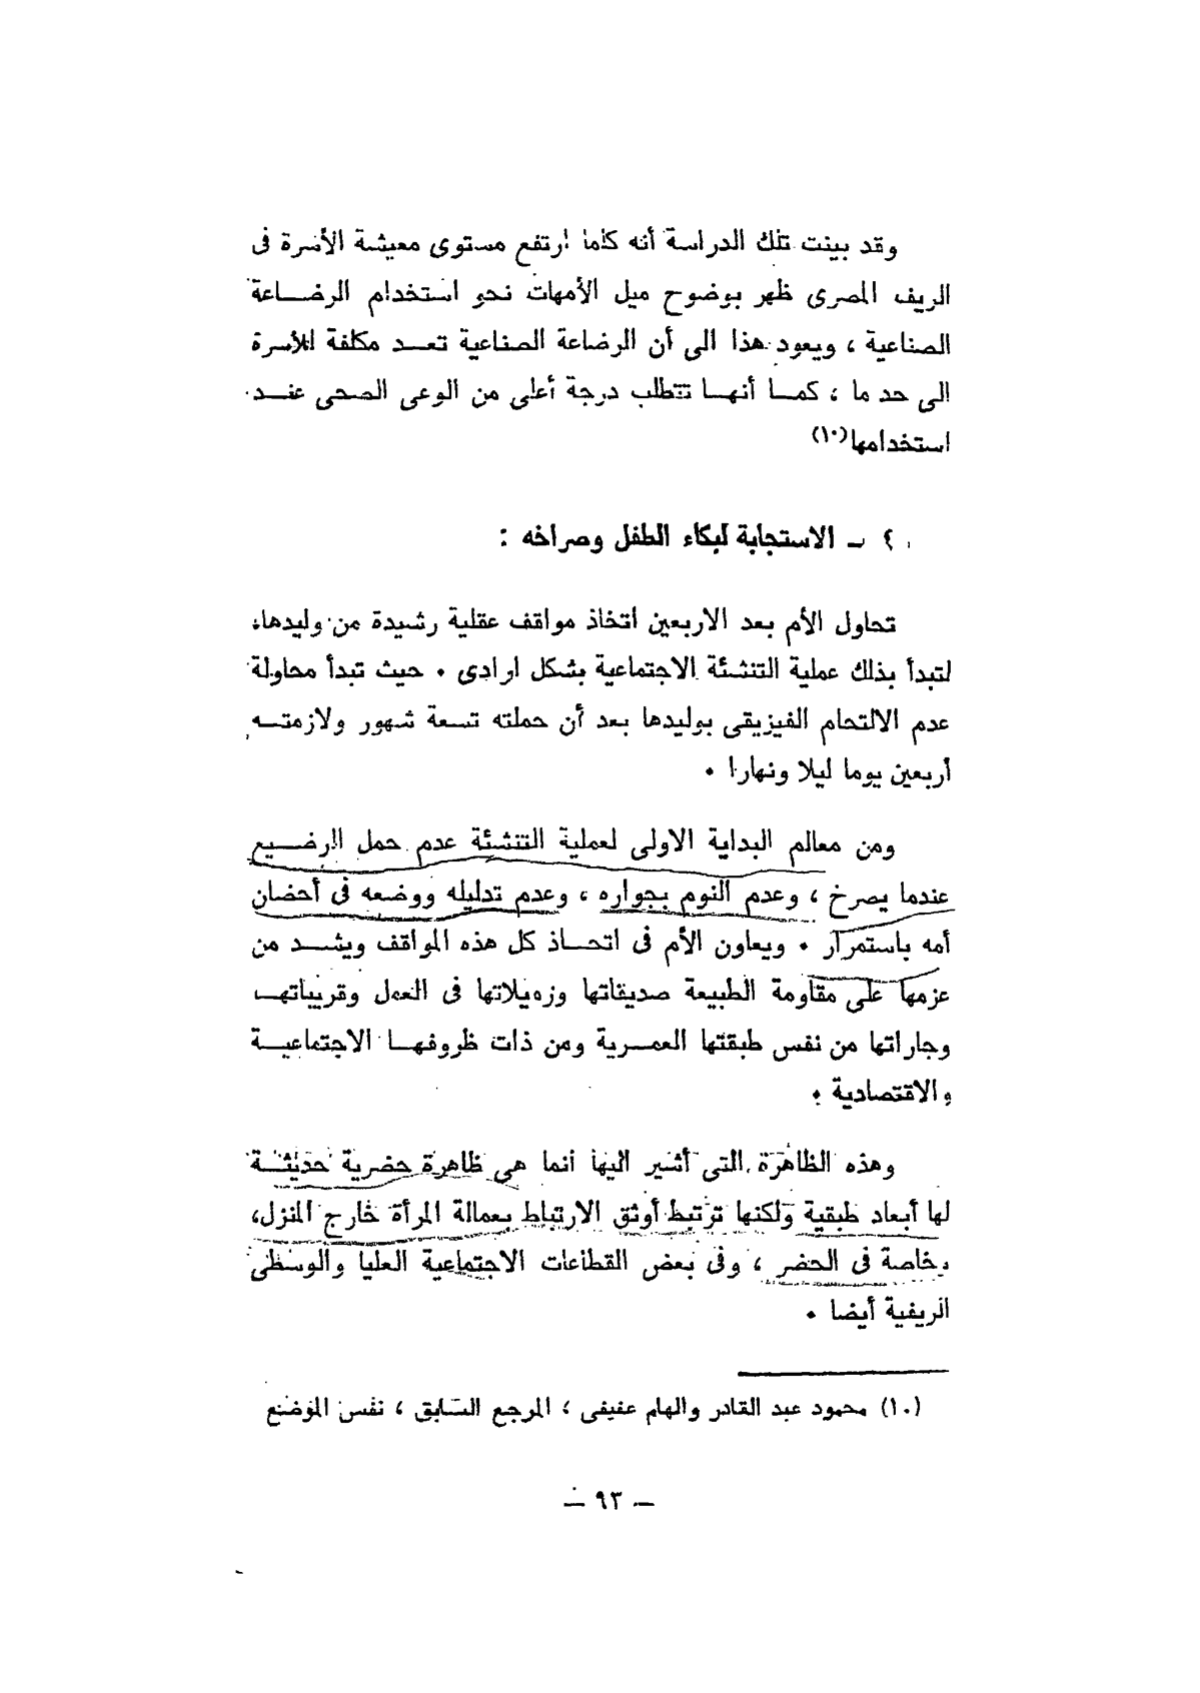 وقد بينت تلك الدراسة أنه كلما ارتفع مستوى معيشة الأسرة فى
الريف المصرى ظهر بوضوح ميل الأمهات نحو استخدام الرضاعة
الصناعية ، ويعود هذا الى أن الرضاعة الصناعية تعد مكلفة للأسرة
الى حد ما ، كما أنها تتطلب درجة أعلى من الوعى الصحى عند
استخدامها(١٠)
٤ ـ الاستجابة لبكاء الطفل وصراخه :
تحاول الأم بعد الاربعين اتخاذ مواقف عقلية رشيدة من وليدها،
لتبدأ بذلك عملية التنشئة الاجتماعية بشكل ارادى ٠ حيث تبدأ محاولة
عدم الالتحام الفيزيقى بوليدها بعد أن حملته تسعة شهور ولازمته
أربعين يوما ليلا ونهارا ٠
ومن معالم البداية الاولى لعملية التنشئة عدم حمل الرضيع
عندما يصرخ ، وعدم النوم بجواره ، وعدم تدليله ووضعه فى أحضان
أمه باستمرار ٠ ويعاون الأم فى اتحاذ كل هذه المواقف ويشد من
عزمها على مقاومة الطبيعة صديقاتها وزميلاتها فى العمل وقريباتها
وجاراتها من نفس طبقتها العمرية ومن ذات ظروفها الاجتماعية
والاقتصادية ٠
وهذه الظاهرة التى أشير اليها انما هى ظاهرة حضرية حديثة
لها أبعاد طبقية ولكنها ترتبط أوثق الارتباط بعمالة المرأة خارج المنزل،
بخاصة فى الحضر ، وفى بعض القطاعات الاجتماعية العليا والوسطى
الريفية أيضا ٠
(١٠) محمود عبد القادر والهام عفيفى ، المرجع السابق ، نفس الموضع
ـ ٩٣ ـ